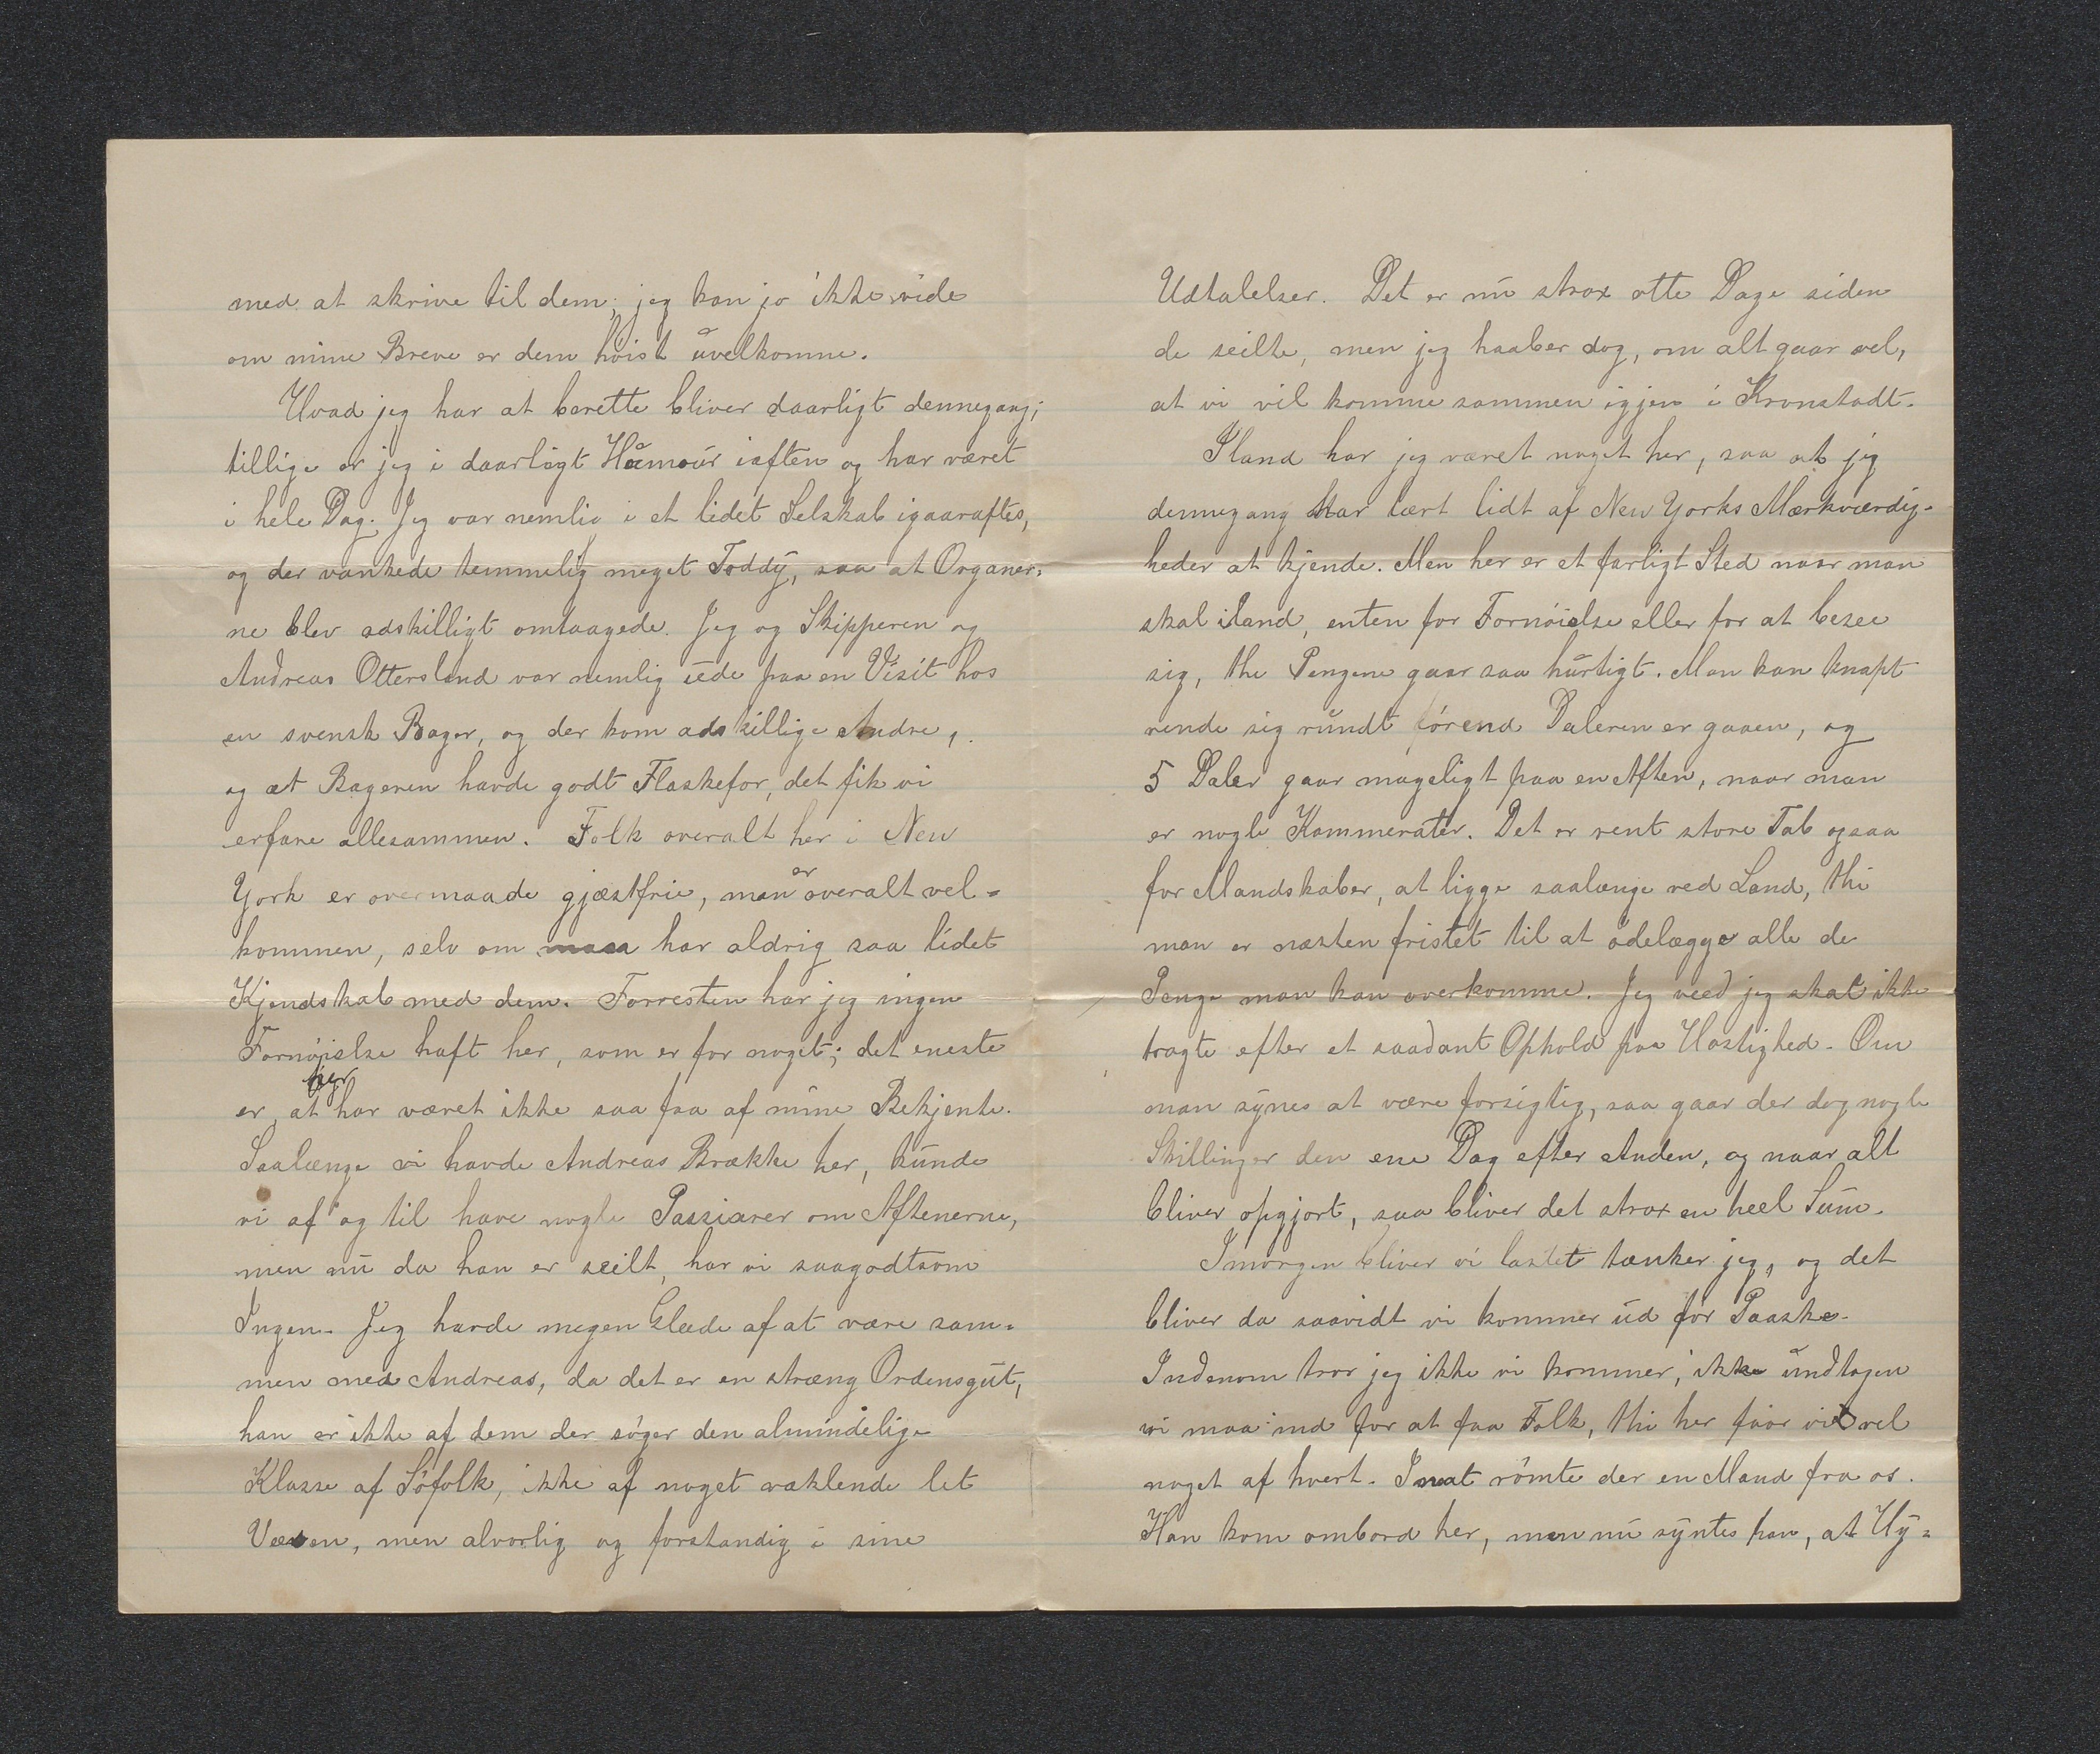 med at skrive til dem; jeg kan jo ikke vide
om mine Breve er dem höist uvelkomne.
Hvad jeg har at berette bliver daarligt dennegang;
tillige er jeg i daarligt Humour iaften og har været
i hele Dag. Jeg var nemlig i et lidet Selskab igaaraftes,
og der vankede temmelig meget Toddy, saa at Organer-
ne blev adskilligt omtaagede. Jeg og Skipperen og
Andreas Ottersland var nemlig ude paa en Visit hos
en svensk Bager, og der kom adskillige Andre,
og at Bageren havde godt Flaskefor, det fik vi
erfare allesammen. Folk overalt her i New
York er overmaade gjæstfrie, man er overalt vel-
kommen, selv om man har aldrig saa lidet
Kjendskab med dem. Forresten har jeg ingen
Fornøielse haft her, som er for noget; det eneste
er, at her har været ikke saa faa af mine Bekjente.
Saalænge vi havde Andreas Brække her, kunde
vi af og til have nogle Passiarer om Aftenerne,
men nu da han er seilt, har vi saagodtsom
Ingen. Jeg havde megen Glæde af at være sam-
men med Andreas, da det er en stræng Ordensgut,
han er ikke af dem der söger den almindelige
Klasse af Söfolk, ikke af noget vaklende let
Væsen, men alvorlig og forstandig i sine
Udtalelser. Det er nu strax otte Dage siden
de seilte, men jeg haaber dog, om alt gaar vel,
at vi vil komme sammen igjen i Kronstadt.
Iland har jeg været noget her, saa at jeg
dennegang har lært lidt af New Yorks Mærkværdig-
heder at kjende. Men her er et farligt Sted naar man
skal iland, enten for Fornöielse eller for at besee
sig, thi Pengene gaar saa hurtigt. Man kan knapt
vende sig rundt förend Daleren er gaaen, og
5 Daler gaar mageligt paa en Aften, naar man
er nogle Kammerater. Det er rent store Tab ogsaa
for Mandskaber, at ligge saalænge ved Land, thi
man er næsten fristet til at ödelægge alle de
Penge man kan overkomme. Jeg veed jeg skal ikke
tragte efter et saadant Ophold paa Hastighed. Om
man synes at være forsigtig, saa gaar der dog nogle
Skillinger den ene Dag efter Anden, og naar alt
bliver opgjort, saa bliver det strax en heel Sum.
Imorgen bliver vi lastet tænker jeg, og det
bliver da saavidt vi kommer ud for Paaske.
Indenom tror jeg ikke vi kommer, ikke undtagen
vi maa ind for at faa Folk, thi her faar vi vel
noget af hvert. Inat römte der en Mand fra os.
Han kom ombord her, men nu syntes han, at Hy-